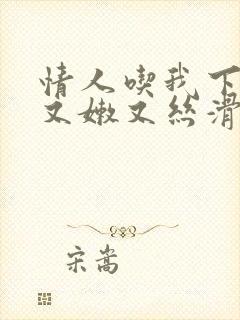 情人喫我下
又嫩又丝滑
宋嵩